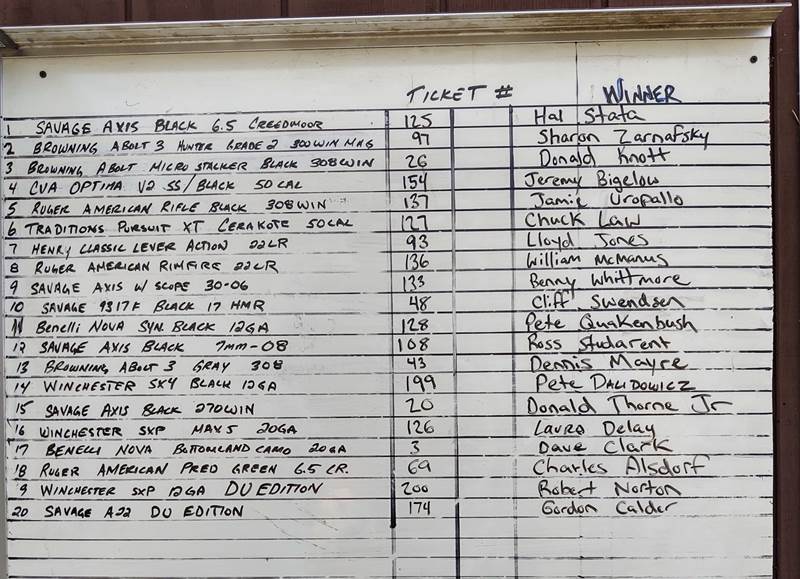 TICKET # WINNER
1 SAVAGE AXIS BLACK 6.5 CREEDMOOR 125 Hal Stata
2 BROWNING ABOLT 3 HUNTER GRADE 2 300 WIN MAG 97 Sharon Zarnafsky
3 BROWNING ABOLT MICRO STACKER BLACK 308 WIN 26 Donald Knott
4 CVA OPTIMA V2 SS/BLACK 50 CAL 154 Jeremy Bigelow
5 RUGER AMERICAN RIFLE BLACK 308 WIN 137 Jamie Uropallo
6 TRADITIONS PURSUIT XT CERAKOTE 50CAL 127 Chuck Law
7 HENRY CLASSIC LEVER ACTION 22LR 93 Lloyd Jones
8 RUGER AMERICAN RIMFIRE 22LR 136 William McManus
9 SAVAGE AXIS W/ SCOPE 30-06 133 Benny Whittmore
10 SAVAGE 9317F BLACK 17 HMR 48 Cliff Swendsen
11 Benelli NOVA SYN. BLACK 12GA 128 Pete Quakenbush
12 SAVAGE AXIS BLACK 7mm-08 108 Ross Studarent
13 BROWNING ABOLT 3 GRAY 308 43 Dennis Mayre
14 WINCHESTER SX4 BLACK 12GA 199 Pete DALIDOWICZ
15 SAVAGE AXIS BLACK 270WIN 20 Donald Thorne Jr
16 WINCHESTER SXP MAX 5 20GA 126 Laura Delay
17 BENELLI NOVA BOTTOMLAND CAMO 20GA 3 Dave Clark
18 RUGER AMERICAN PRED GREEN 6.5 CR. 69 Charles Alsdorf
9 WINCHESTER SXP 12GA DU EDITION 200 Robert Norton
20 SAVAGE A22 DU EDITION 174 Gordon Calder